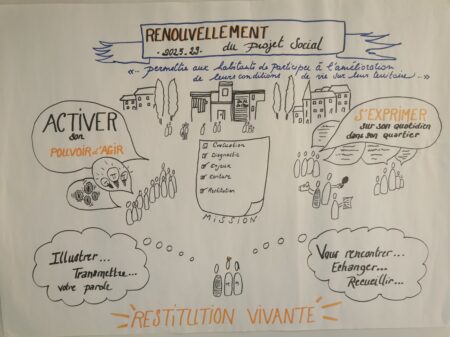 RENOUVELLEMENT
- 2025-29 - du Projet Social
«- permettre aux habitants de participer à l'amélioration
de leurs conditions de vie sur leur territoire -»
ACTIVER
son
POUVOIR d'AGIR
Evaluation
Diagnostic
Enjeux
Ecriture
Restitution
MISSION
S'EXPRIMER
sur son quotidien
dans son quartier
Illustrer...
Transmettre...
votre parole
Vous rencontrer...
Echanger...
Recueillir...
RESTITUTION VIVANTE